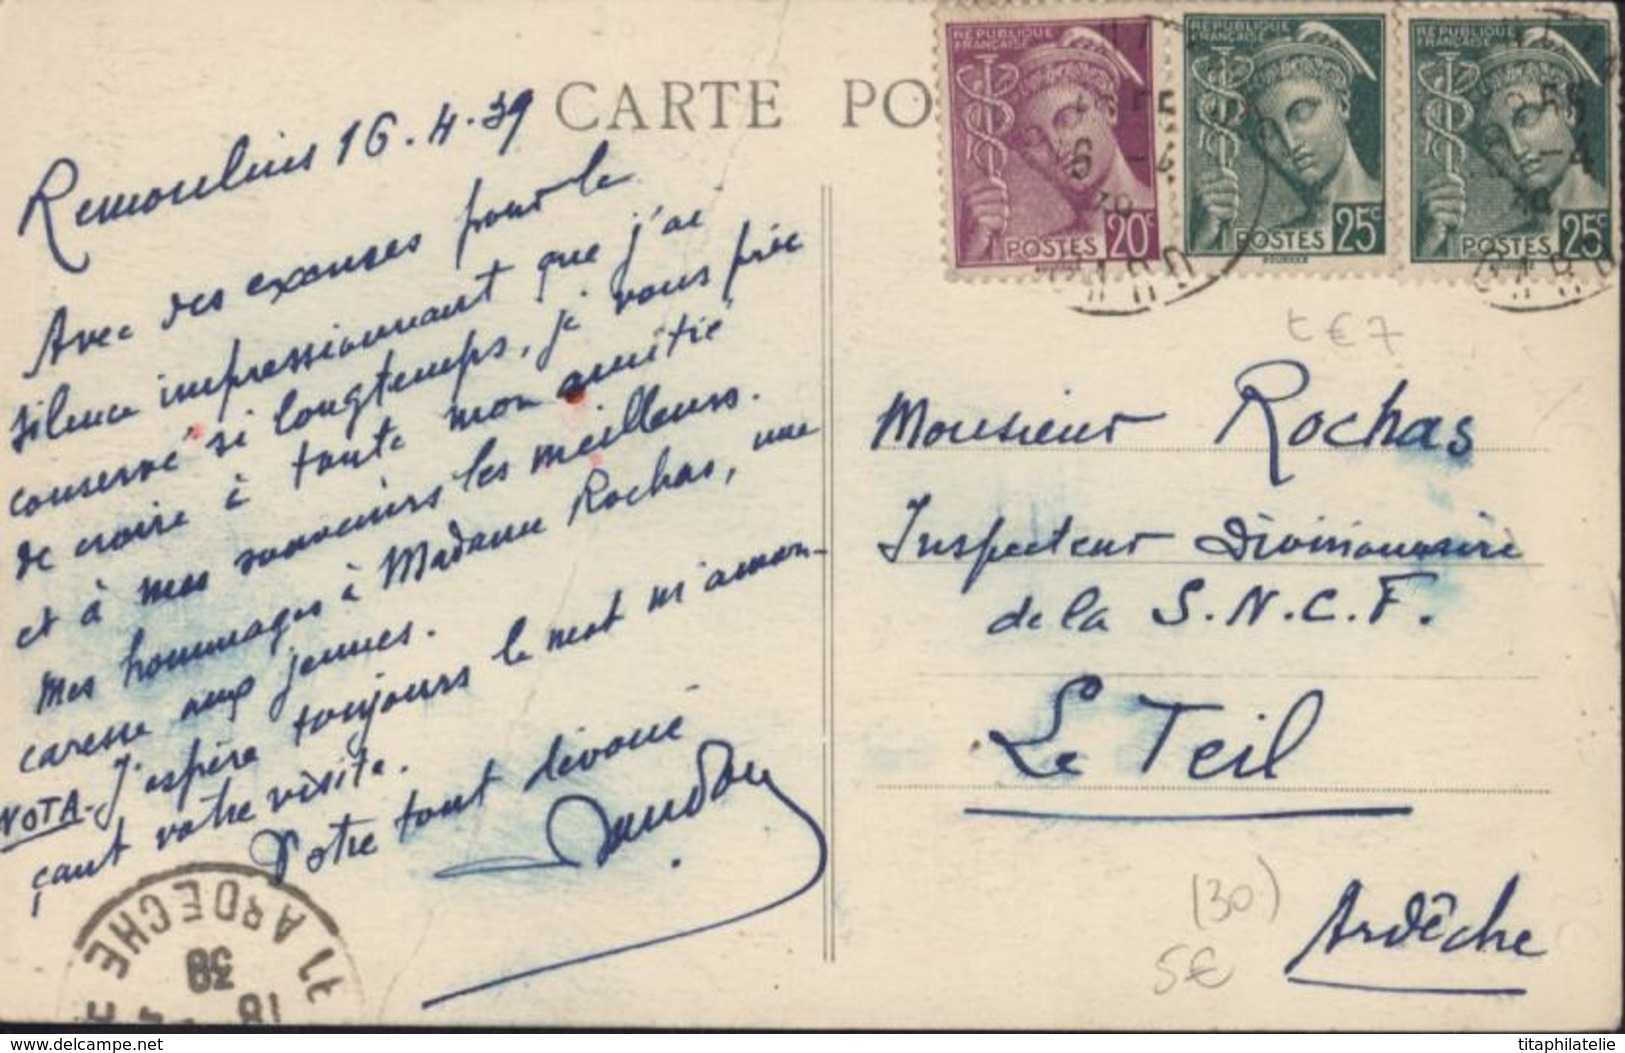 CARTE PO
RÉPUBLIQUE
FRANÇAISE
POSTES 20c
RÉPUBLIQUE
FRANÇAISE
POSTES 25c
RÉPUBLIQUE
FRANÇAISE
POSTES 25c
GARD
GARD
Remoulins 16.4.39
Avec des excuses pour le
silence impressionnant que j'ai
conservé si longtemps, je vous prie
de croire à toute mon amitié
et à mes souvenirs les meilleurs.
Mes hommages à Madame Rochas, une
caresse aux jeunes.
NOTA - J'espère toujours le mot m'annon-
çant votre visite.
Votre tout dévoué
t € 7
Monsieur Rochas
Inspecteur Divisionnaire
de la S.N.C.F.
Le Teil
Ardèche
(30)
5€
ARDECHE
18
titaphilatelie